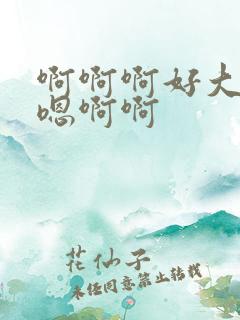 啊啊啊好大
嗯啊啊
花仙子
未经同意禁止转载